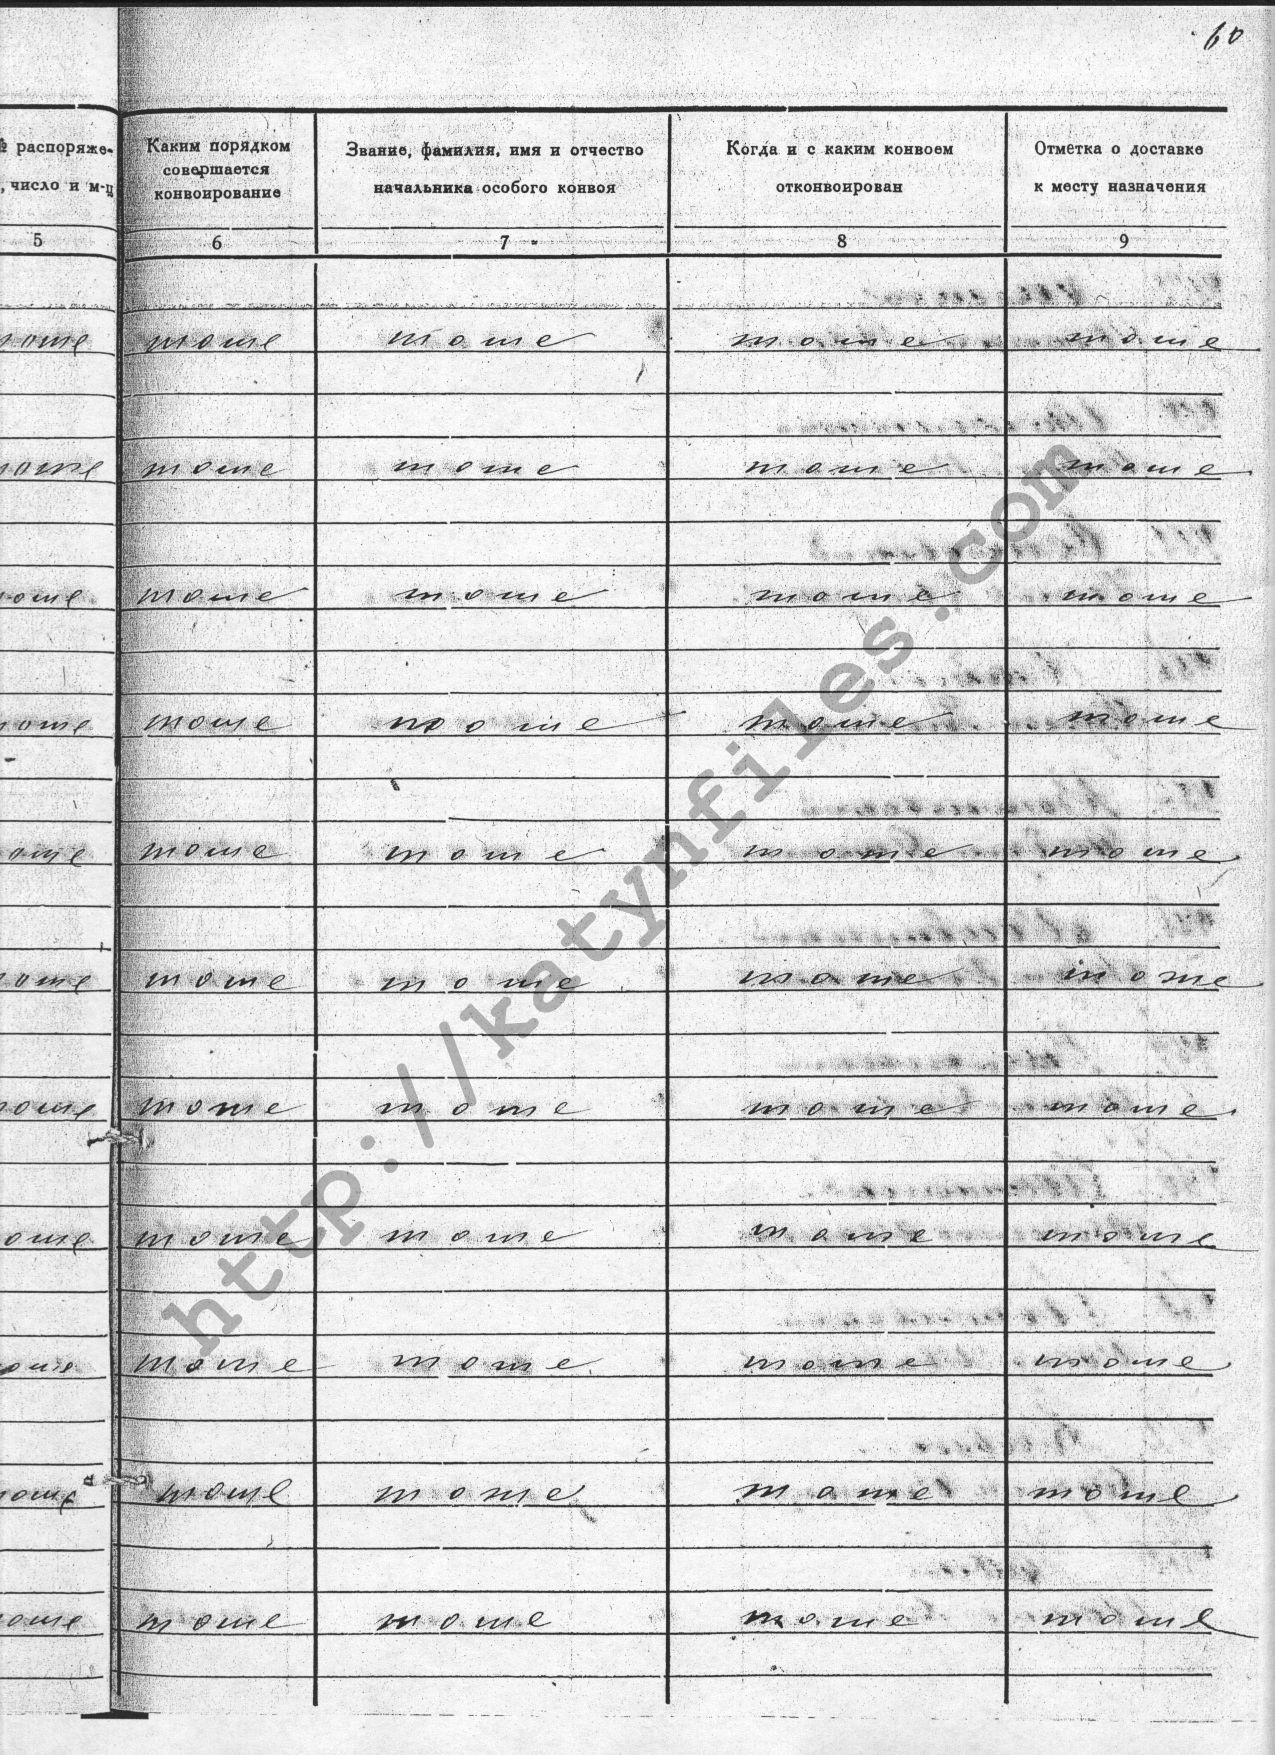 60
№ распоряже-
, число и м-ц
Каким порядком
совершается
конвоирование
Звание, фамилия, имя и отчество
начальника особого конвоя
Когда и с каким конвоем
отконвоирован
Отметка о доставке
к месту назначения
5 6 7 8 9
тоже тоже тоже тоже
тоже тоже тоже тоже
тоже тоже тоже тоже
тоже тоже тоже тоже
тоже тоже тоже тоже
тоже тоже тоже тоже
тоже тоже тоже тоже
тоже тоже тоже тоже
тоже тоже тоже тоже
тоже тоже тоже тоже
тоже тоже тоже тоже
http://katynfiles.com